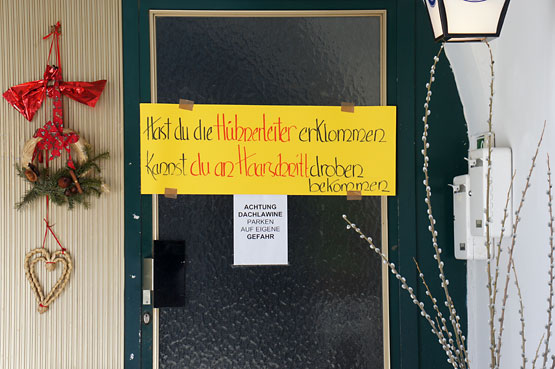 Hast du die Hühnerleiter erklommen
Kannst du an Haarschnittl droben
bekommen
ACHTUNG
DACHLAWINE
PARKEN
AUF EIGENE
GEFAHR